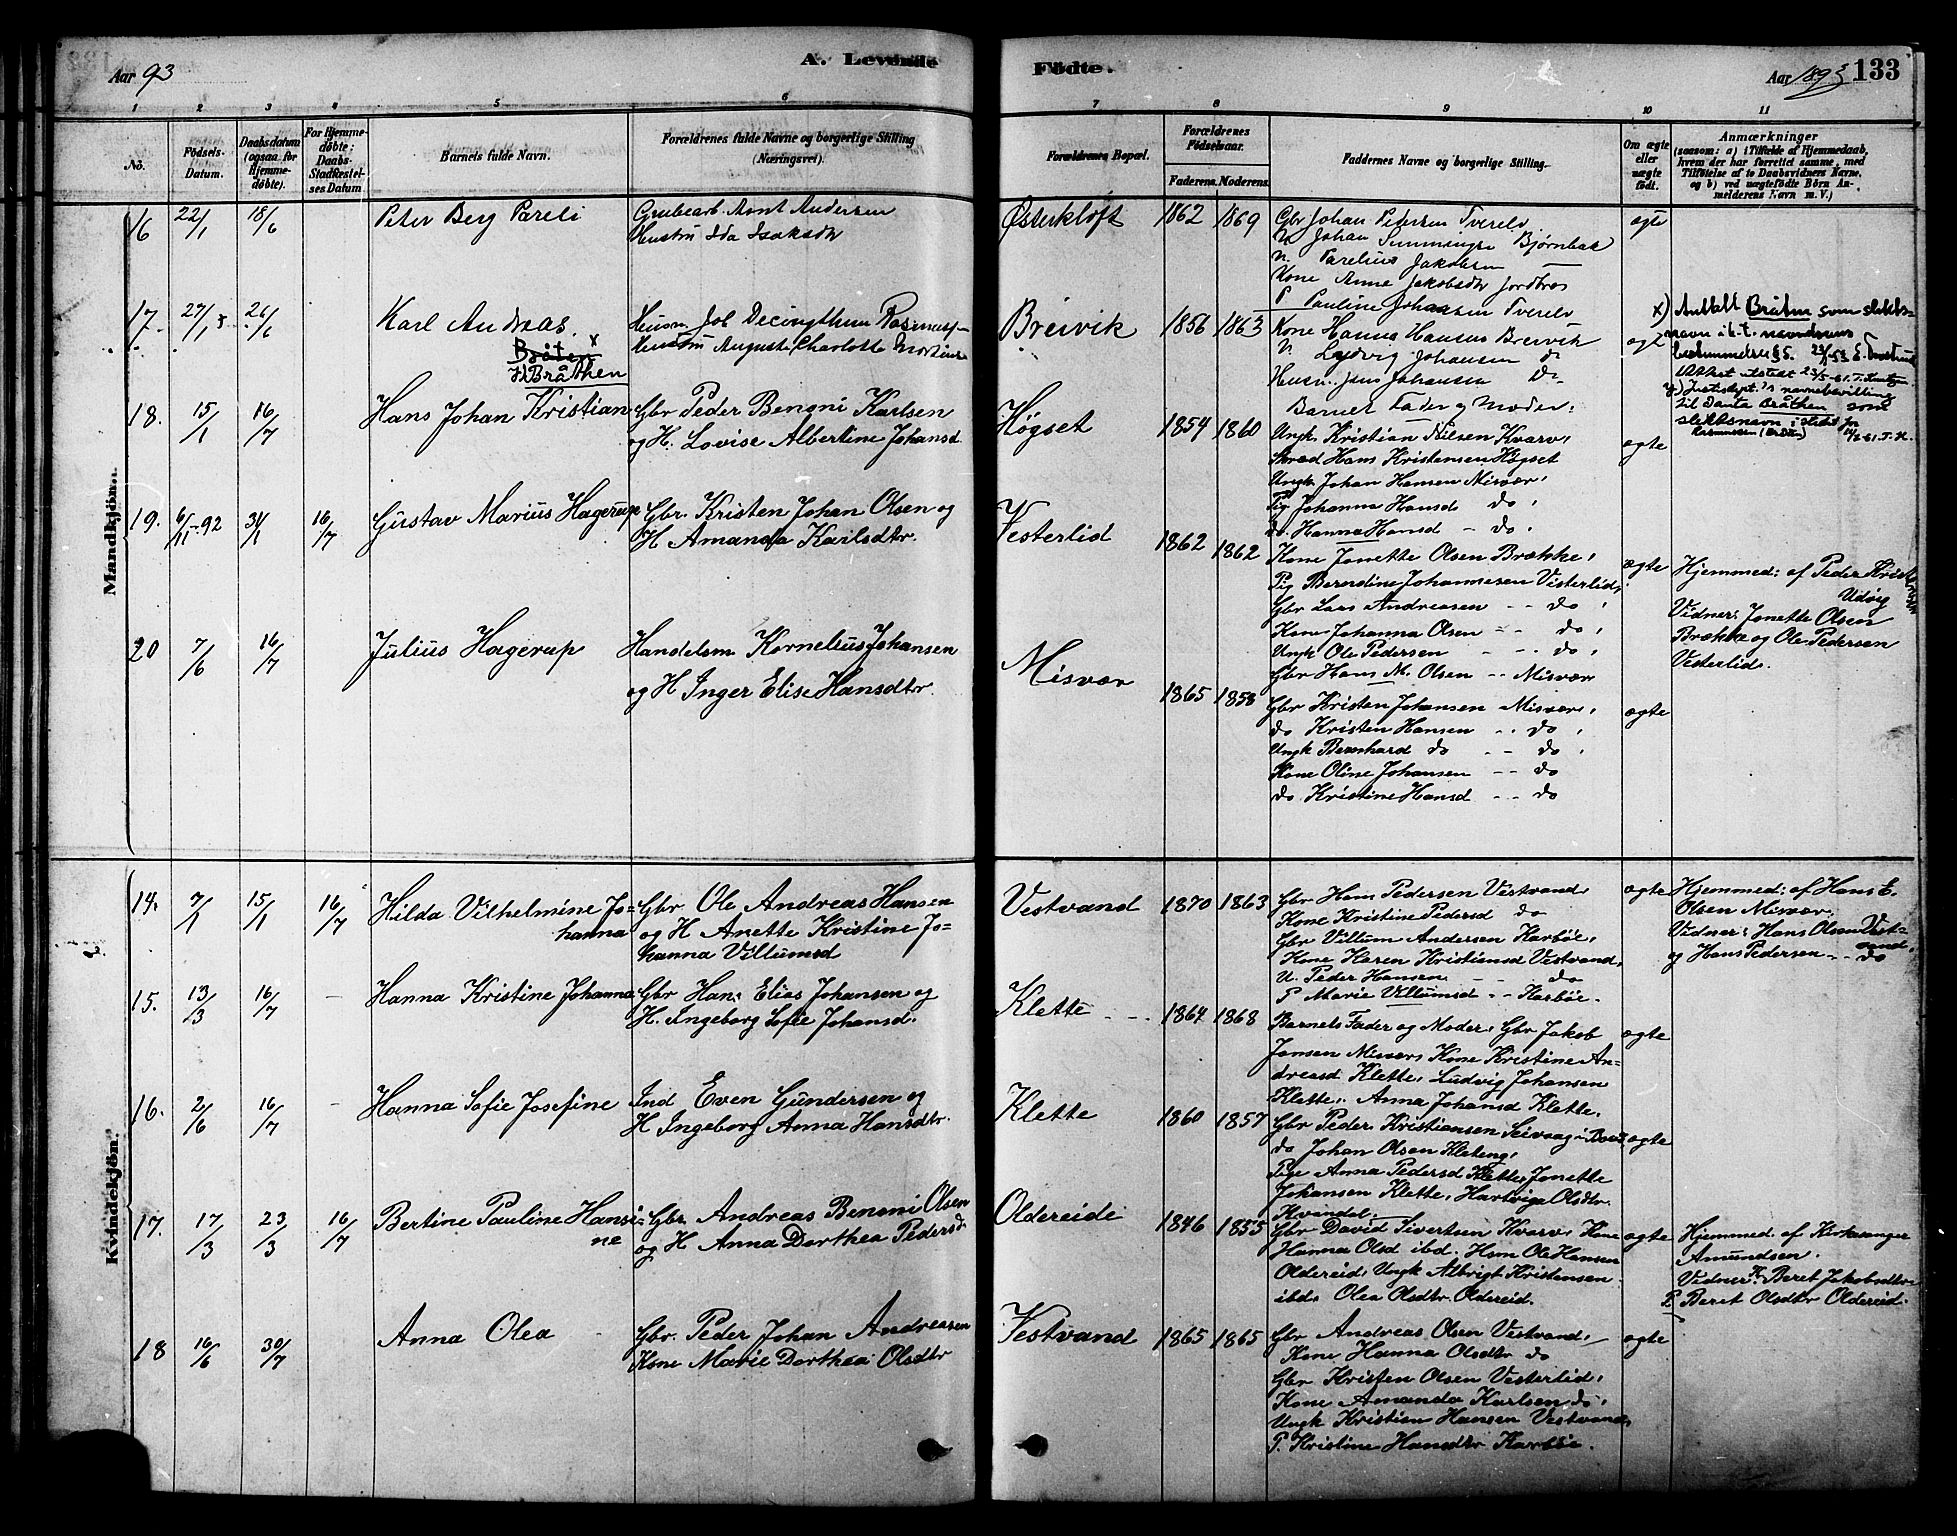 Aar 93
A. Levende
Födte.
Aar 1893
133
1 2 3 4 5 6 7 8 9 10 11
No.
Födsels-Datum.
Daabsdatum (ogsaa for Hjemme-döbte).
For Hjemme-döbte: Daabs-Stadfæstel-ses Datum
Barnets fulde Navn.
Forældrenes fulde Navne og borgerlige Stilling (Næringsvei).
Forældrenes Bopæl.
Forældrenes Födselsaar.
Faderens. Moderens.
Faddernes Navne og borgerlige Stilling.
Om ægte eller uægte födt.
Anmærkninger
(saasom: a) i Tilfælde af Hjemmedaab,
hvem der har forrettet samme, med
Tilföielse af to Daabsvidners Navne,
og b) ved uægtefödte Börn An-
melderens Navn m. V.)
Mandkjön.
16 22/1 18/6 Peter Berg Pareli
Grubearb. Arnt Andersen
Hustru Ida Isaksdtr
Østerkløft 1862 1869
Gbr Johan Pedersen Tverelv
Bjørnbak
Parelius Jakobsen
Kone Anne Jakobsdtr
P Pauline Johansen Tverelv
ægte
17. 27/1 26/6
Karl Andreas x
Bråten
Bråthen
Husm Job
Hustru Auguste Charlotte
Breivik 1856 1863
Kone Hanna Hansen Breivik
Ludvig Johansen do
Husm. Jens Johansen Do
Barnets Fader og Moder.
ægt
x) Antatt Bråten som slekts-
navn
til Bråthen som
slektsnavn i stedet for
18. 15/1 16/7 Hans Johan Kristian
Gbr Peder Benoni Karlsen
og H. Lovise Albertine Johansd
Høgset 1854 1860
Ungk. Kristian Nilsen Kvarv,
Hans Kristensen Høgset
Ungk Johan Hansen Misvær,
Pig Johanna Hansd do,
do. Hanna Hansd - do.
ægte
19. 6/11-92 31/1 16/7 Gustav Marius Hagerup
Gbr. Kristen Johan Olsen og
H. Amanda Karlsdtr.
Vesterlid 1862 1862
Kone Jonette Olsen Brække,
Pig Berndine Johannesen Vesterlid,
Gbr Lars Andreasen - - do,
Kone Johanna Olsen - - do,
Ungk Ole Pedersen - - do,
Gbr Hans M. Olsen - - Misvær
ægte
Hjemmed: af Peder Kristensen
Udvig
Vidner: Jonette Olsen
Brække og Ole Pedersen
Vesterlid.
20 7/6 16/7 Julius Hagerup
Handelsm Kornelius Johansen
og H Inger Elise Hansdtr.
Misvær 1865 1858
Gbr Kristen Johansen Misvær,
do Kristen Hansen - - do,
Ungk Bernhard do - - do,
Kone Oline Johansen - - do
do. Kristine Hansd - - do
ægte
Kvindekjön.
14. 7/1 15/1 16/7 Hilda Vilhelmine Jo-
hanna
Gbr Ole Andreas Hansen
og H Anette Kristine Jo-
hanna Villumsd
Vestvand 1870 1863
Gbr Hans Pedersen Vestvand,
Kone Kristine Pedersd do
Gbr Villum Andersen Karbøe,
Kone Karen Kristiansd Vestvand,
U. Peder Hansen - do
P Marie Villumsd - - Karbøe.
ægte
Hjemmed: af Hans E.
Olsen Misvær.
Vidner: Hans Olsen Vest-
vand,
og Hans Pedersen - - do
15. 13/3 16/7 - Hanna Kristine Johanna
Gbr Hans Elias Johansen og
H. Ingeborg Sofie Johansd.
Klette 1864 1868
Barnets Fader og Moder, Gbr Jakob
Jonsen Misvær, Kone Kristine An-
dreasd Klette, Ludvig Johansen
Klette, Anna Johansd Klette.
ægte
16. 2/6 16/7 - Hanna Sofie Josefine
Ind Even Gundersen og
H Ingeborg Anna Hansdtr.
Klette 1860 1857
Gbr Peder Kristiansen Seivaag i Bodø
do Johan Olsen Kleteng,
Pige Anna Pedersd Klette, Jonette
Johansen Klette, Hartviga Olsdtr.
Kvandal.
ægte
17. 17/3 23/3 16/7 Bertine Pauline Hansi-
ne
Gbr. Andreas Benoni Olsen
og H Anna Dorthea Pedersd
Oldereide 1846 1855
Gbr David Sivertsen Kvarv, Kone
Hanna Olsd ibd. Husm Ole Hansen
Oldereid, Ungk Albrigt Kristensen
ibd, Olea Olsdtr. Oldereid.
ægte
Hjemmed. af Kirkesanger
Amundsen.
Vidner: K. Beret Jakobsdtr
P Beret Olsdtr Oldereid.
18 16/6 30/7 Anna Olea
Gbr. Peder Johan Andreasen
Kone Marie Dorthea Olsdtr
Vestvand 1865 1865
Gbr Andreas Olsen Vestvand,
Kone Hanna Olsdtr do
Gbr Kristen Olsen Vesterlid,
Kone Amanda Karlsen do,
Ungk Kristian Hansen Vestvand,
P. Kristine Hansdtr Karbøe.
ægte